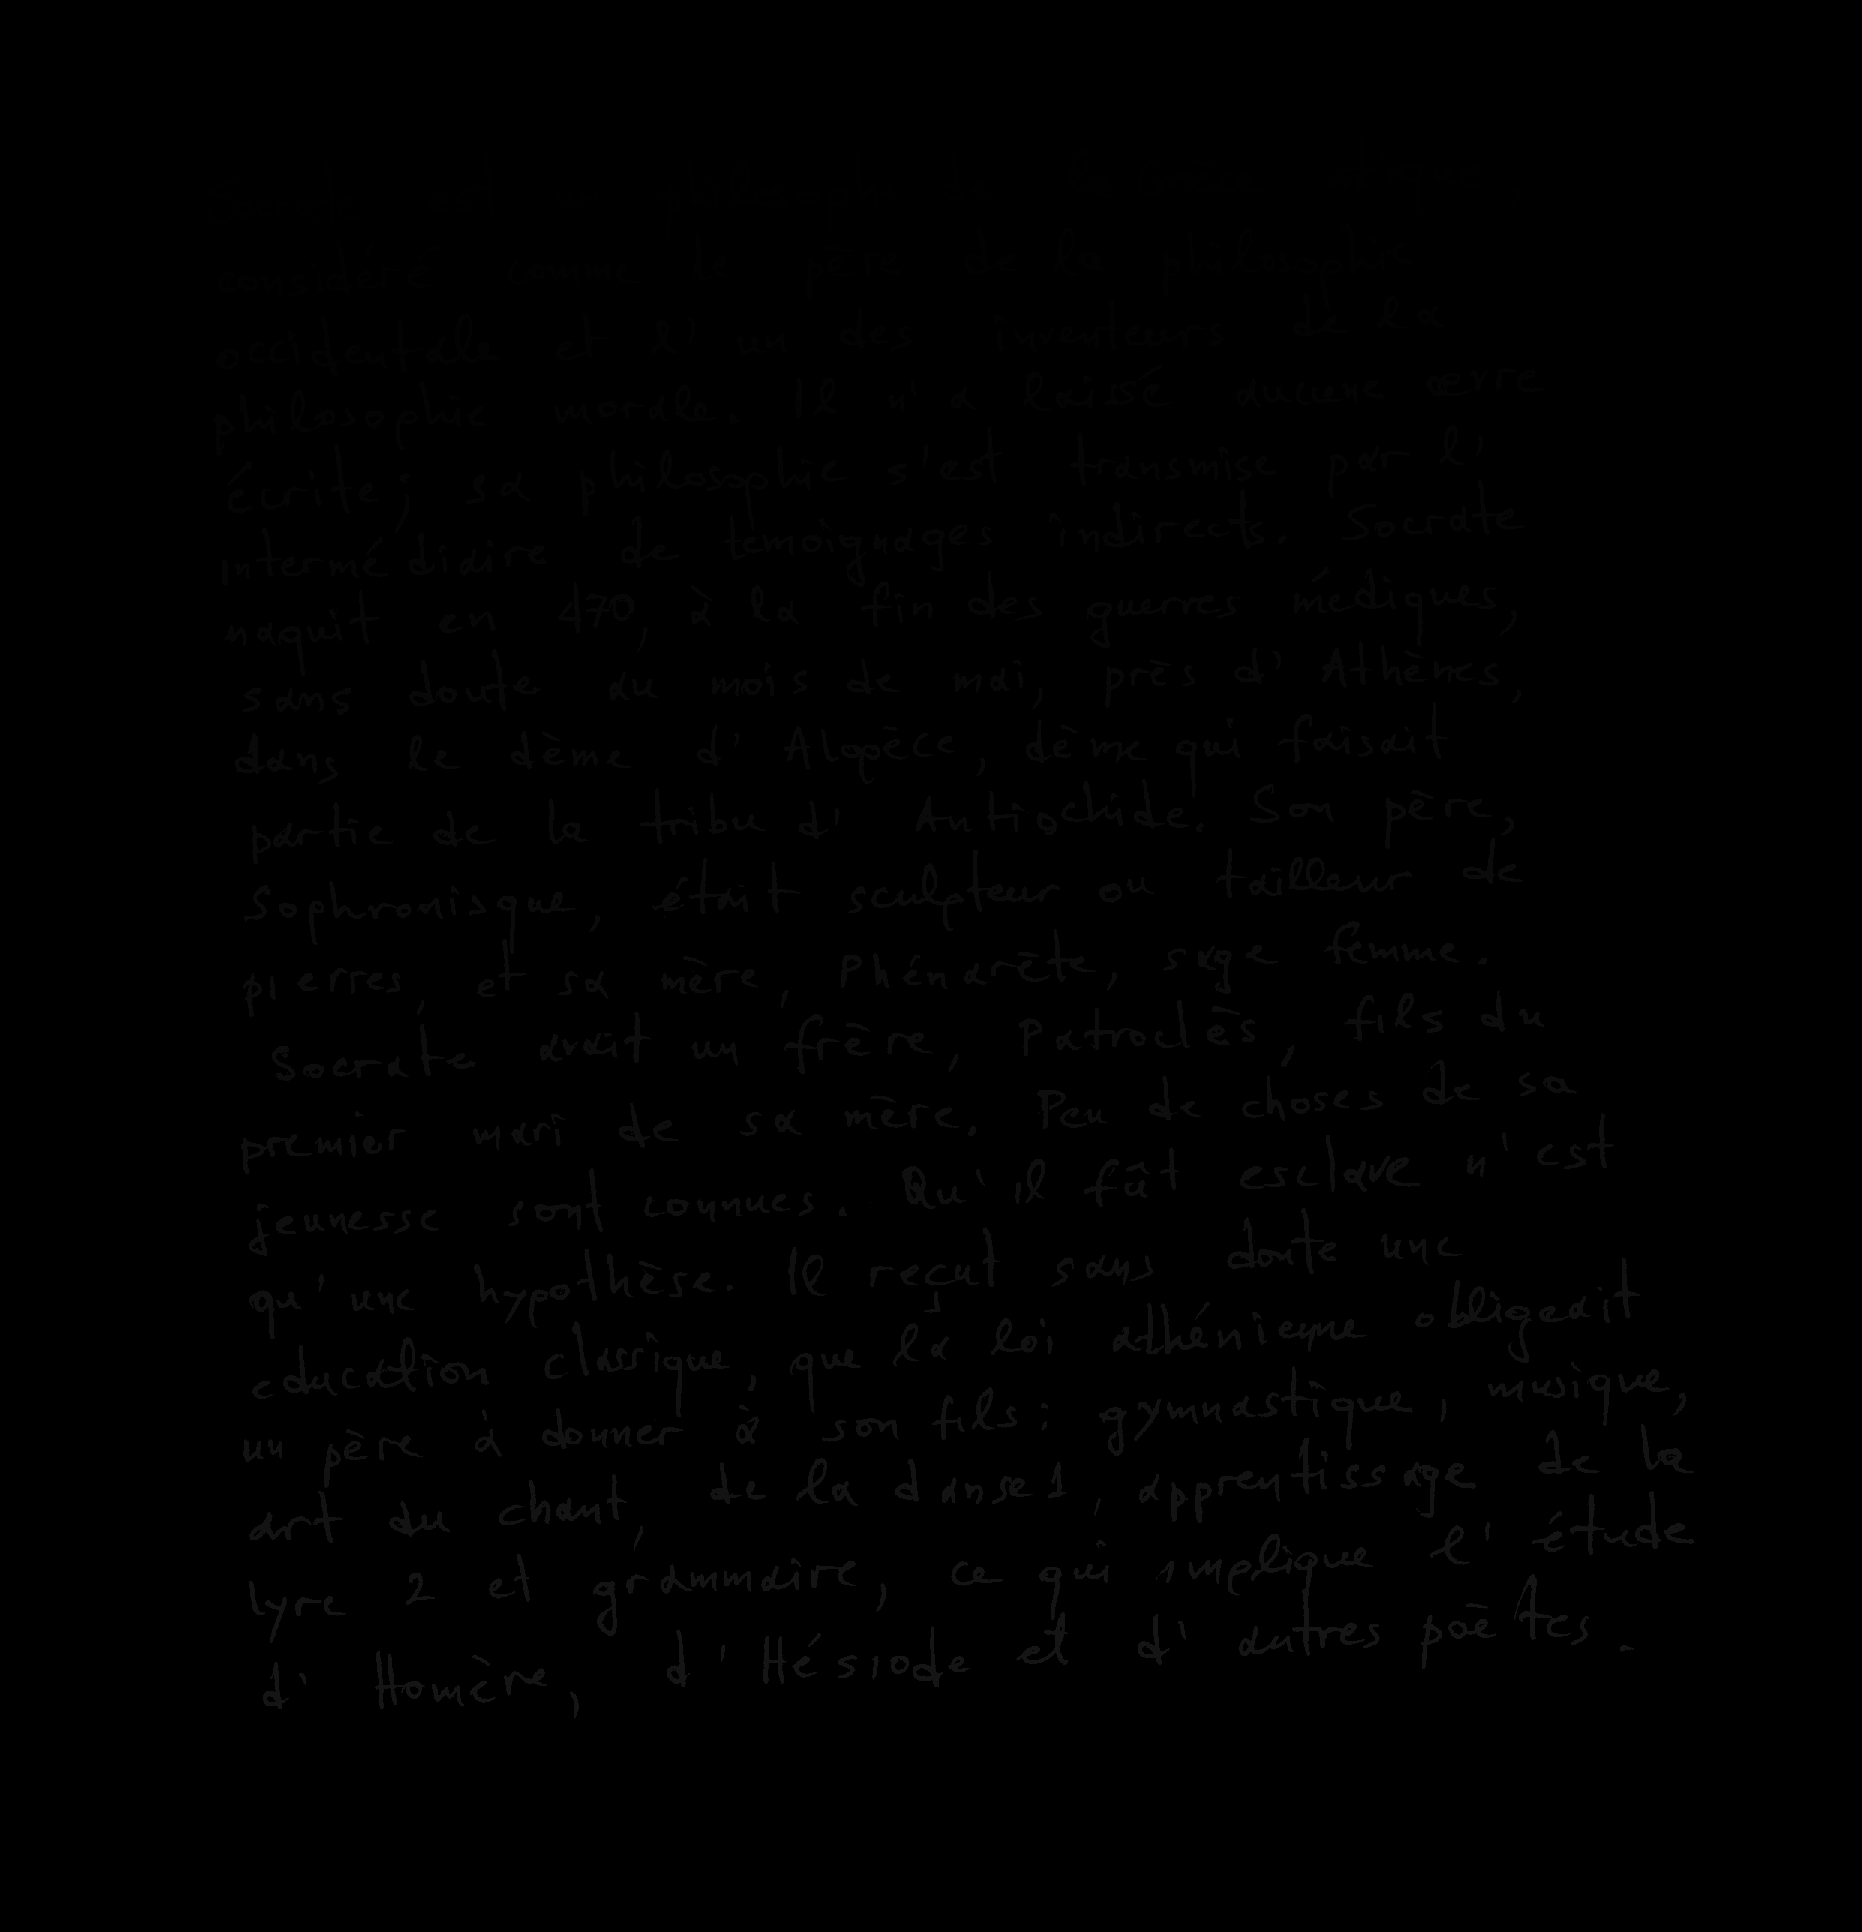 philosophe
considéré comme le père de la philosophie
occidentale et l' un des inventeurs de la
philosophie morale. Il n' a laissé aucune œvre
écrite; sa philosophie s'est transmise par l'
intermédiaire de temoignages indirects. Socrate
naquit en 470, à la fin des guerres médiques,
sans doute au mois de mai, près d' Athènes,
dans le dème d' Alopèce, dème qui faisait
partie de la tribu d' Antiochide. Son père,
Sophronisque, était sculpteur ou tailleur de
pierres, et sa mère, Phénarète, sage femme.
Socrate avait un frère, Patroclès, fils du
premier mari de sa mère. Peu de choses de sa
jeunesse sont connues. Qu' il fût esclave n' est
qu' une hypothèse. Il reçut sans doute une
education classique, que la loi athénienne obligeait
un père à donner à son fils: gymnastique, musique,
art du chant, de la danse1, apprentissage de la
lyre 2 et grammaire, ce qui implique l' étude
d' Homère, d' Hésiode et d' autres poètes.